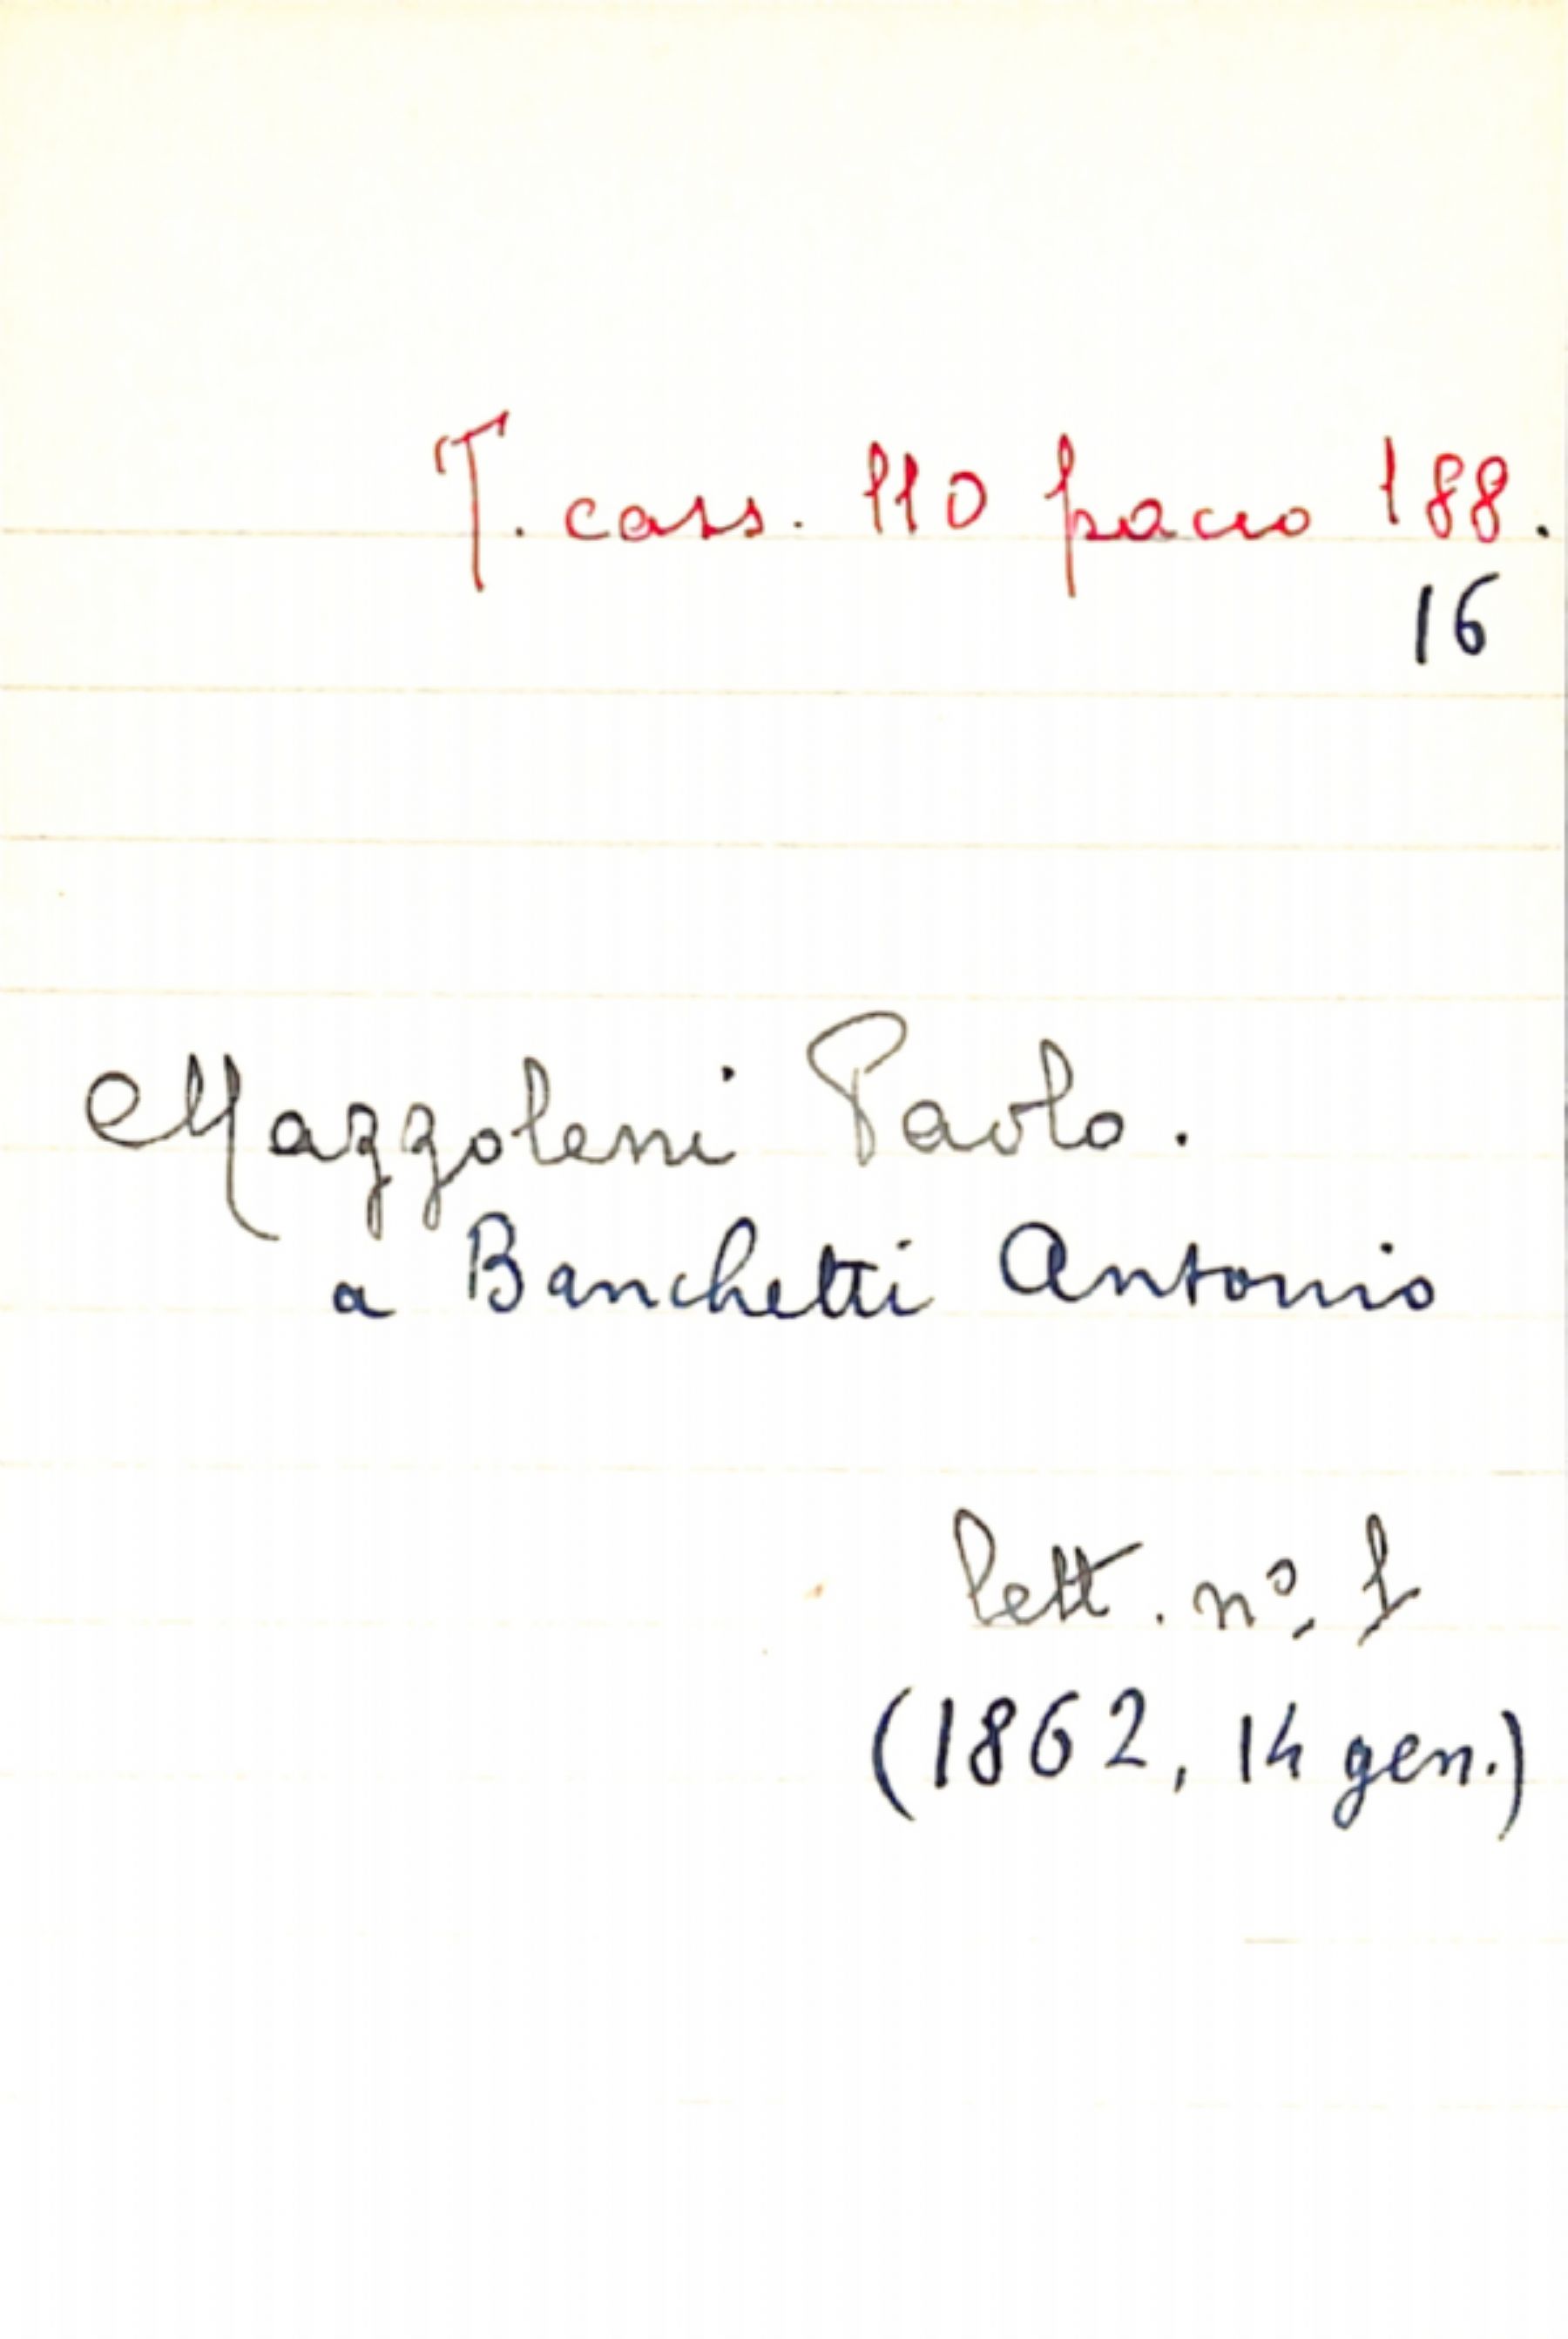 T. cass. 110 pacco 188.
16
Mazzoleni Paolo.
a Banchetti Antonio
lett. nº 1
(1862, 14 gen.)